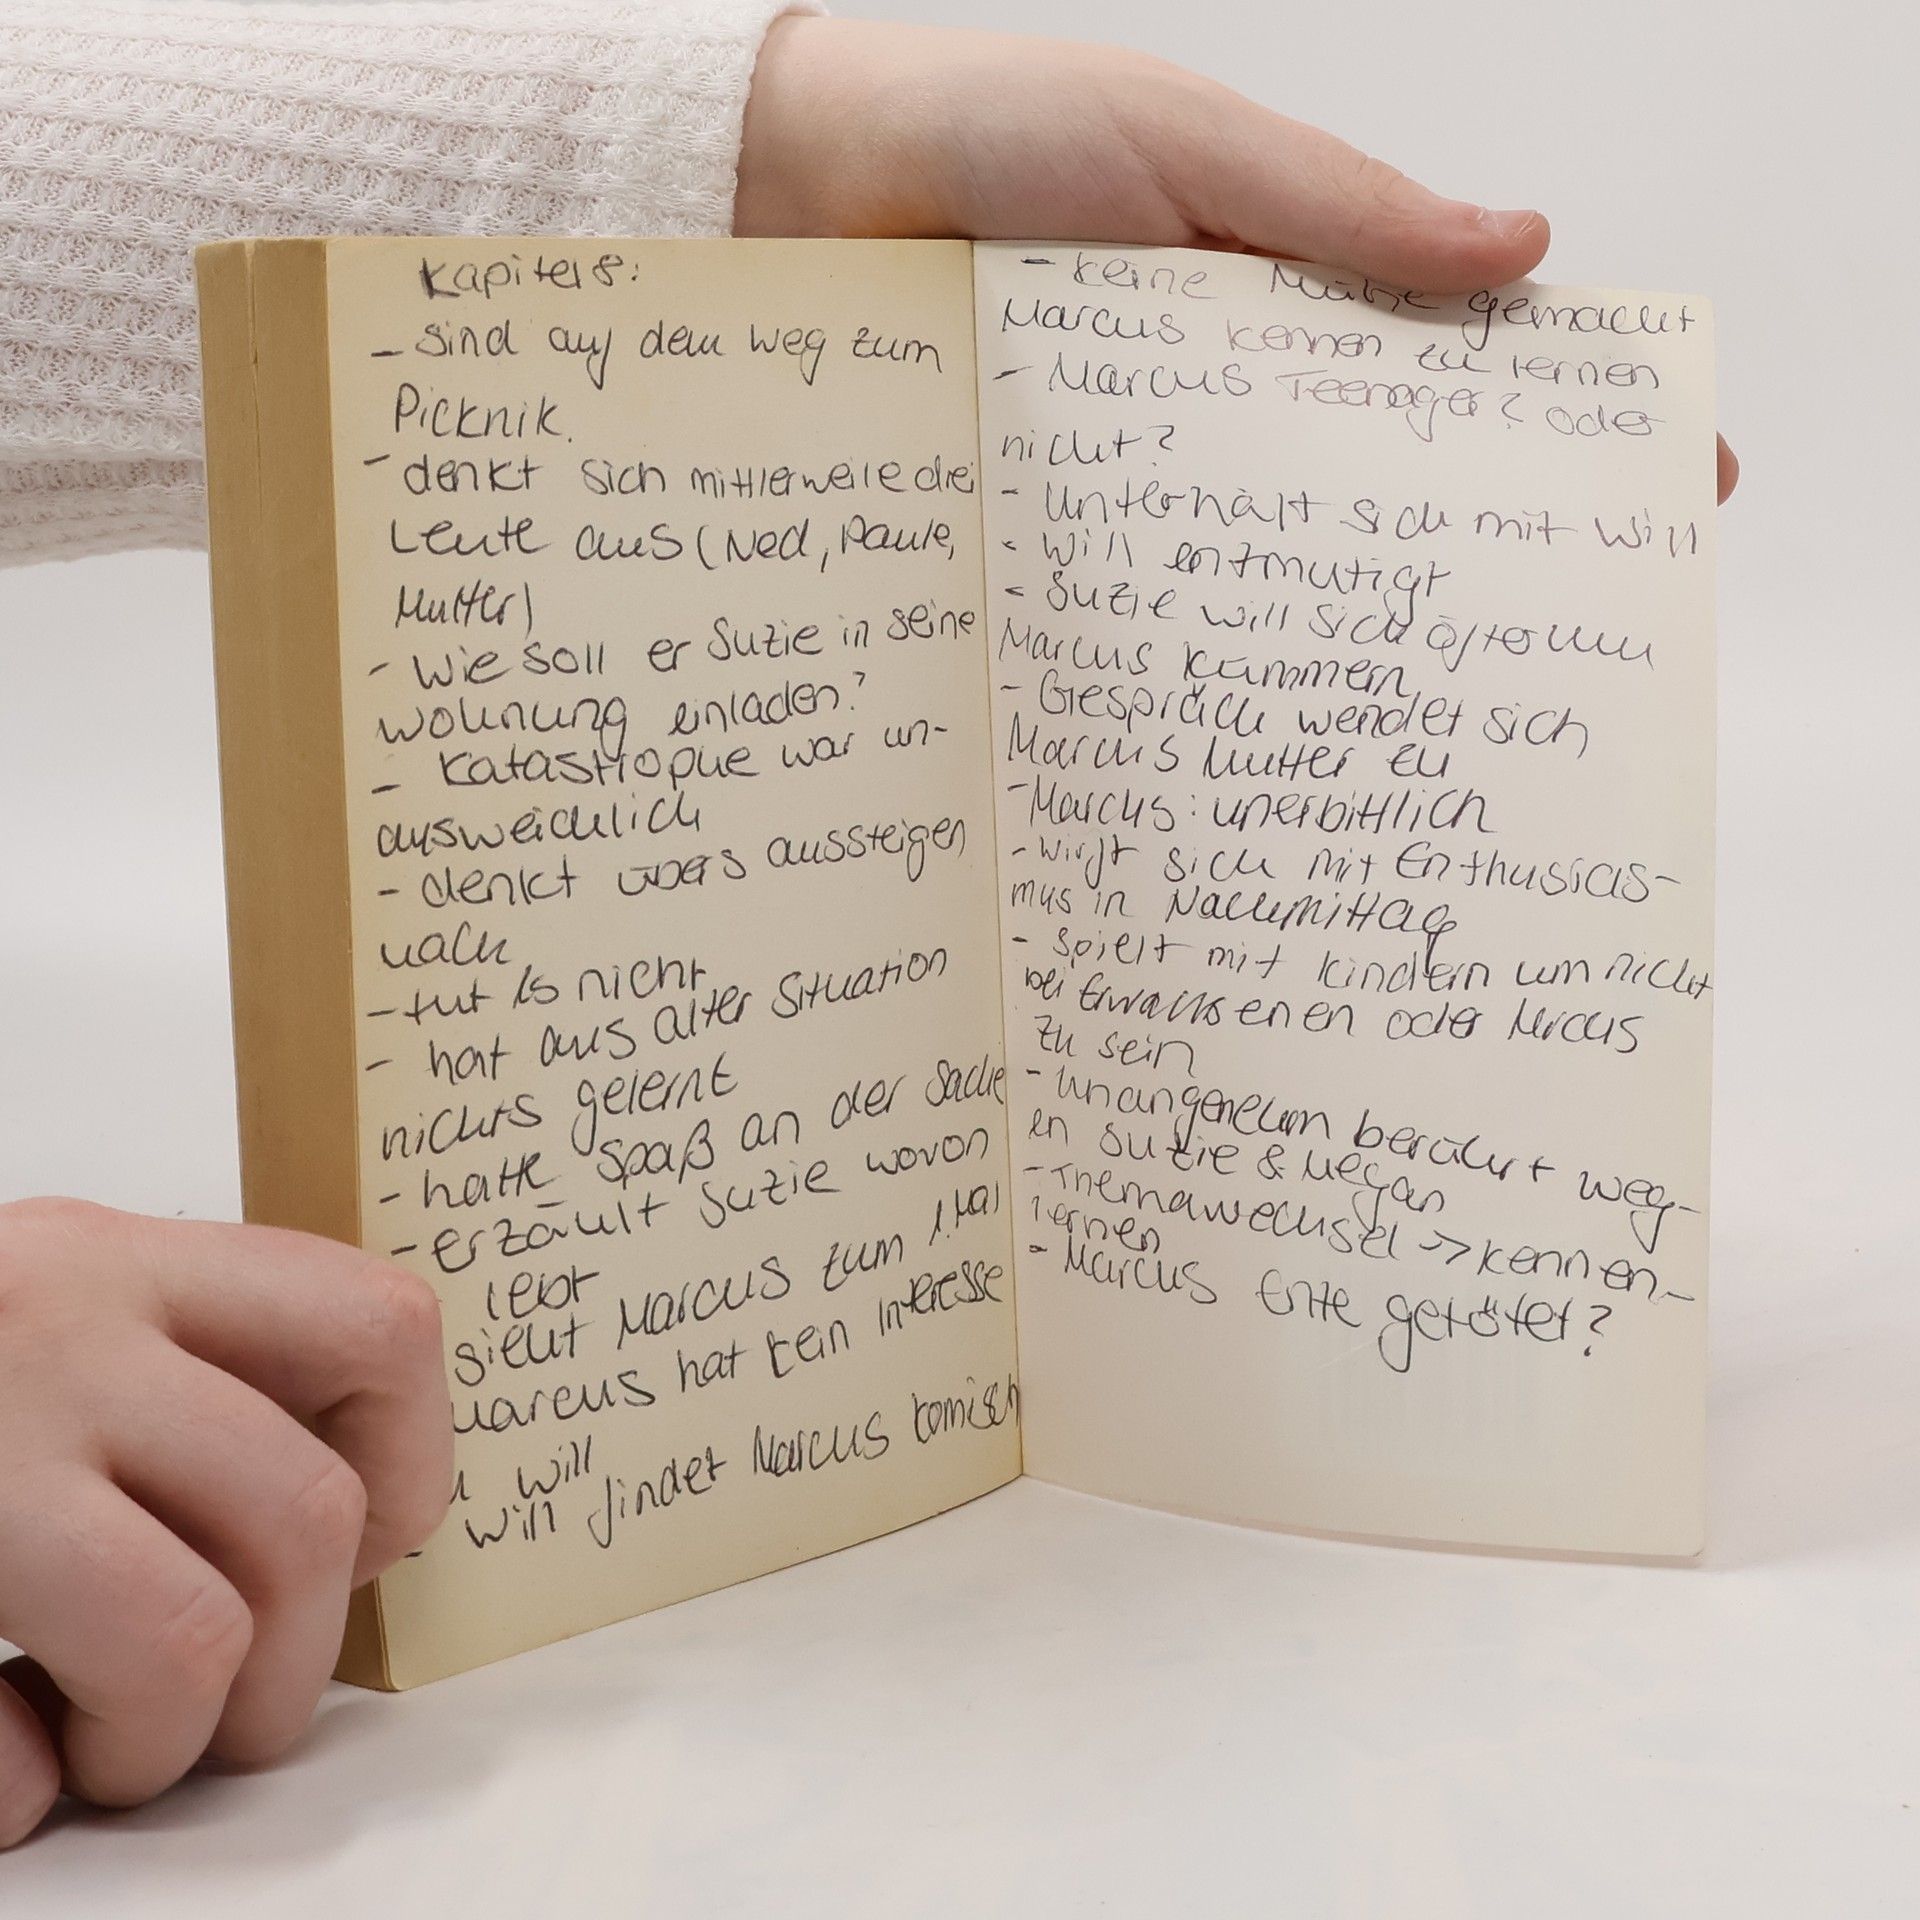 Kapitel 8:
- sind auf dem Weg zum
Picknik.
- denkt sich mittlerweile drei
Leute aus (Ned, Paule,
Mutter)
- Wie soll er Suzie in seine
Wohnung einladen?
- Katastrophe war un-
ausweichlich
- denkt übers aussteigen
nach
- tut es nicht
- hat aus alter Situation
nichts gelernt
- hatte Spaß an der Sache
- erzählt Suzie wovon
lebt
sieht Marcus zum 1. Mal
Marcus hat kein Interesse
Will
- Will findet Marcus komisch
- keine Mühe gemacht
Marcus kennen zu lernen
- Marcus Teenager? oder
nicht?
- Unterhält sich mit Will
- Will entmutigt
- Suzie will sich öfter um
Marcus kümmern
- Gespräch wendet sich
Marcus Mutter zu
- Marcus: unerbittlich
- wirft sich mit Enthusias-
mus in Nachmittag
- spielt mit Kindern um nicht
bei Erwachsenen oder Mrcus
zu sein
- Unangenehm berührt weg-
en Suzie & Megan
- Themawechsel -> kennen-
lernen
- Marcus Ente getötet?